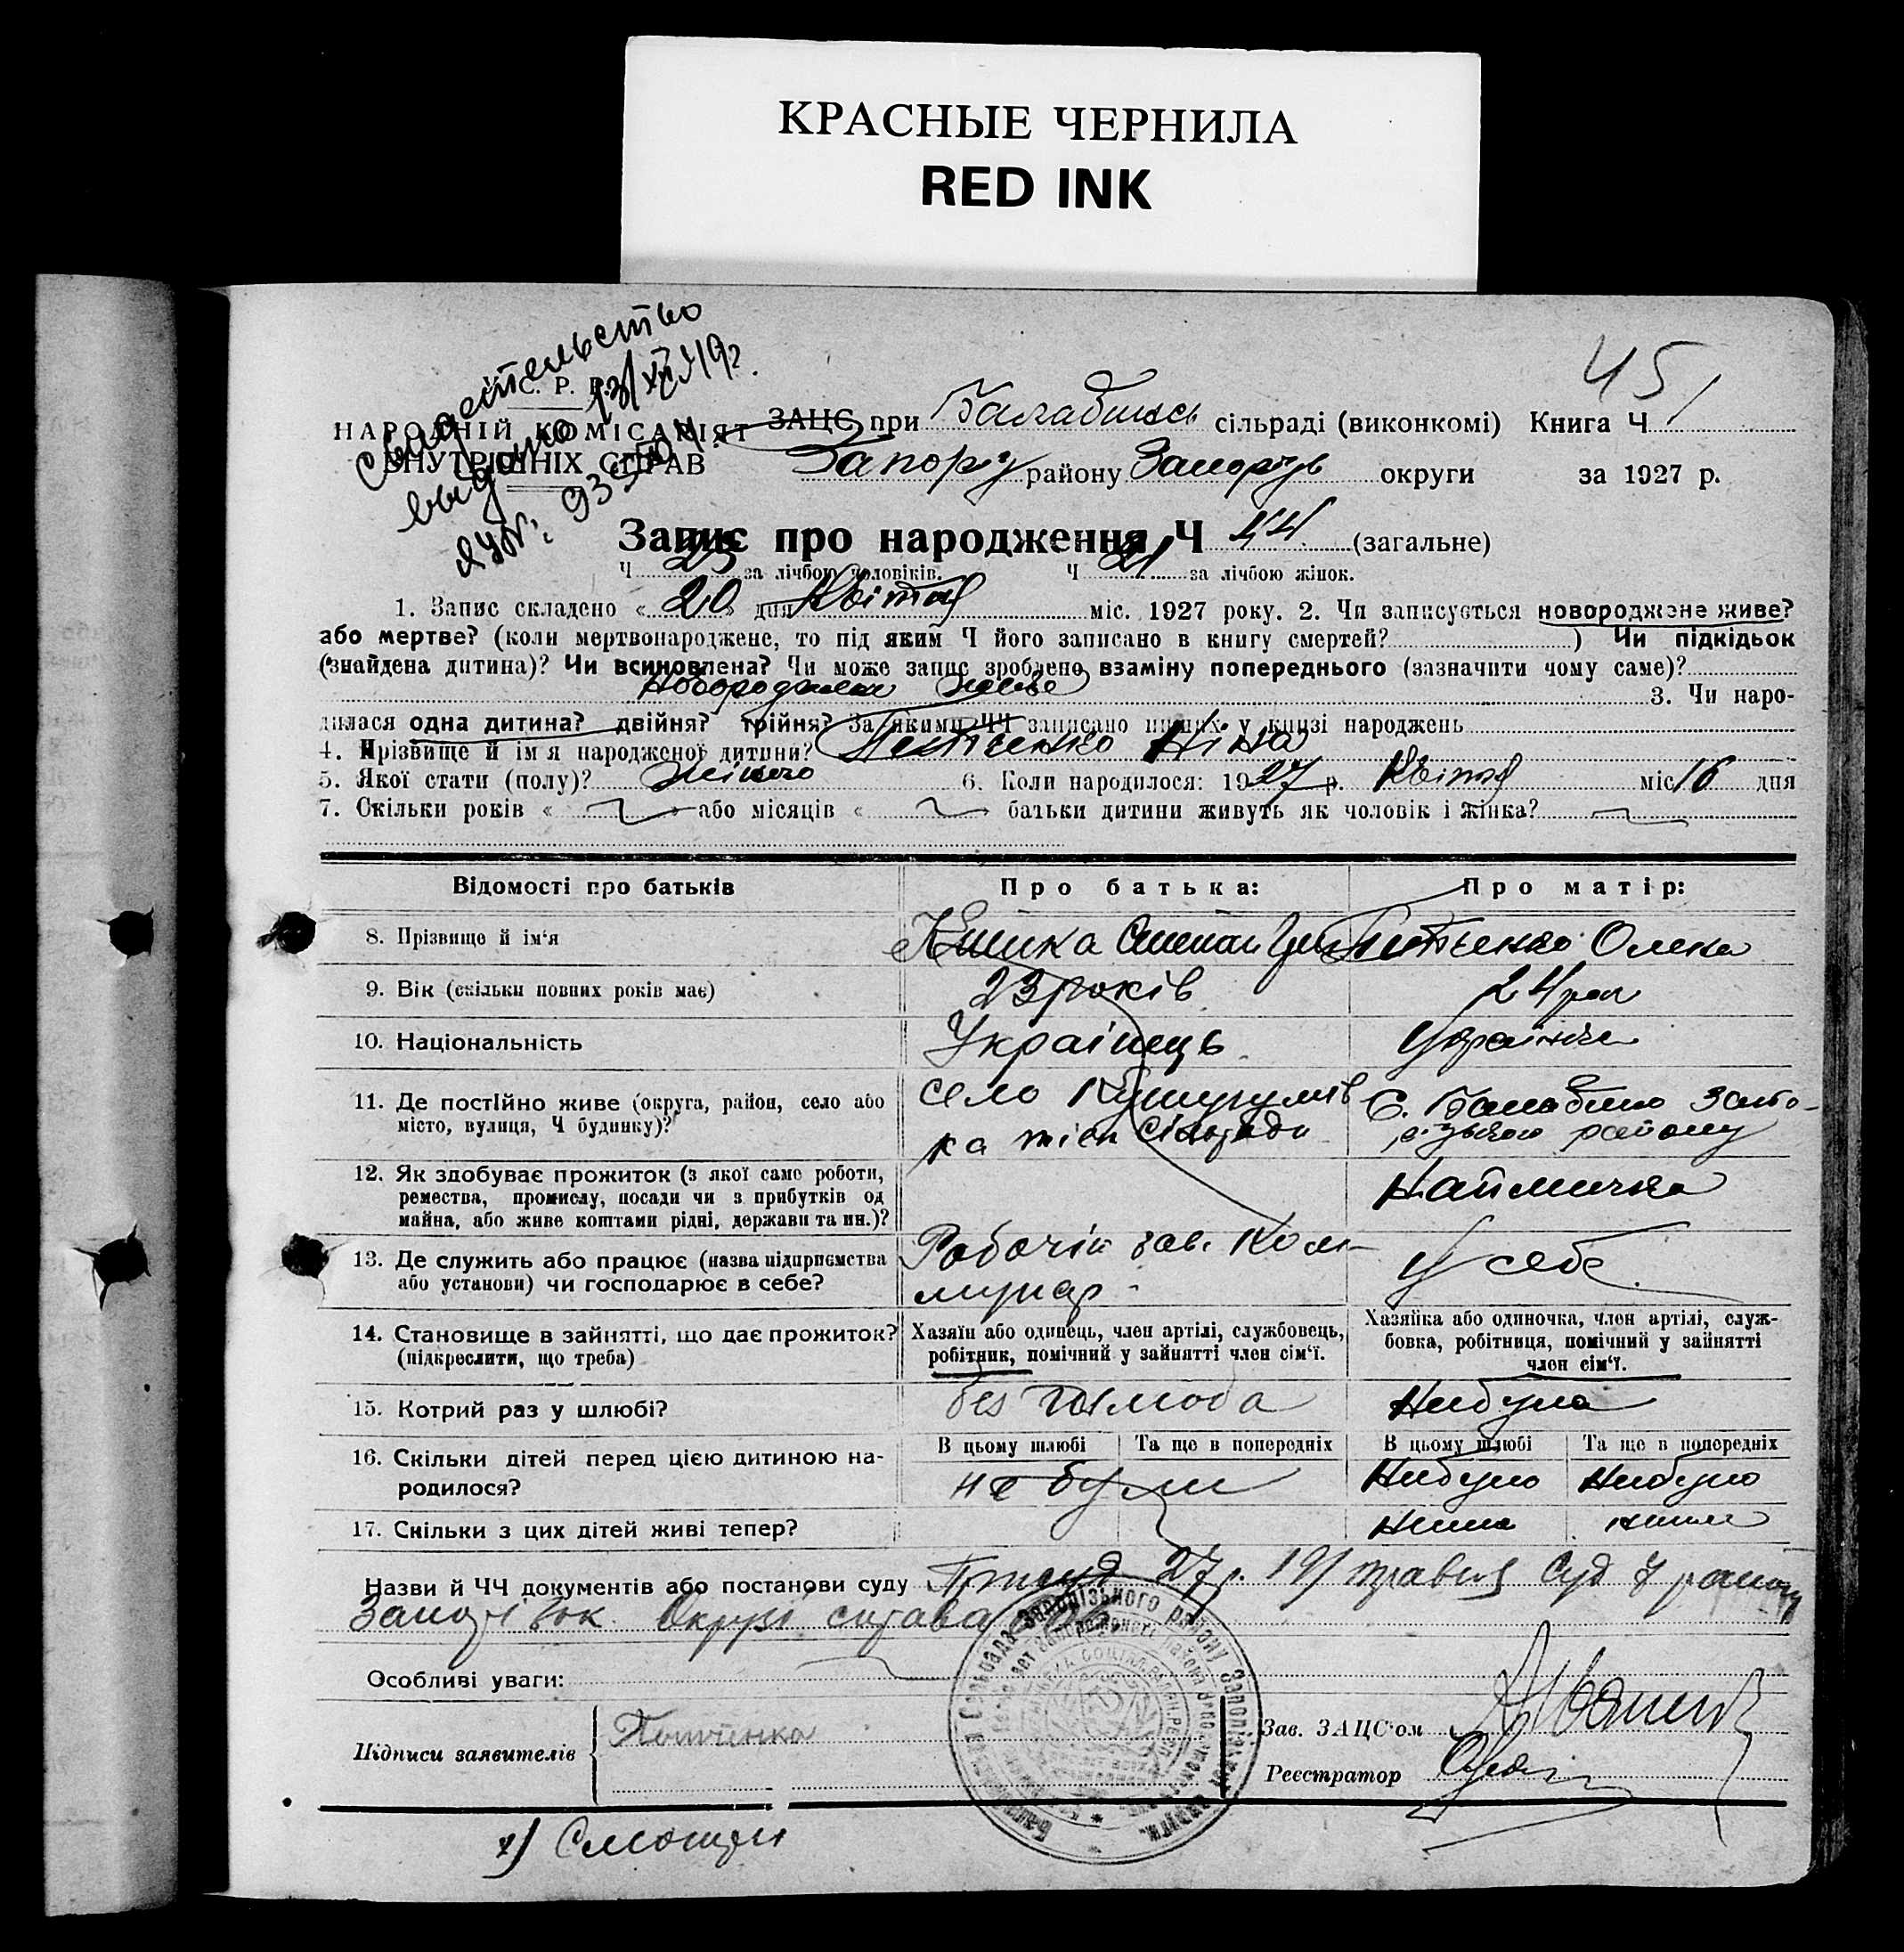 КРАСНЫЕ ЧЕРНИЛА
RED INK
451
Свидетельство
выдано 13/XII 419г.
ЯУ№: 93
С. Р. Р.
НАРОДНІЙ КОМІСАРІЯТ
ВНУТРІШНІХ СПРАВ
ЗАЦС при Балабинсь сільраді (виконкомі) Книга Ч
Запоріз району Запорізь округи за 1927 р.
Запис про народження Ч 44 (загальне)
Ч 23 за лічбою чоловіків. Ч 21 за лічбою жінок.
1. Запис складено « 20 » дня Квітня міс. 1927 року. 2. Чи записується новороджене живе?
або мертве? (коли мертвонароджене, то під яким Ч його записано в книгу смертей? ) Чи підкідьок
(знайдена дитина)? Чи всиновлена? Чи може запис зроблено взаміну попереднього (зазначити чому саме)?
Новороджене живе 3. Чи наро-
дилася одна дитина? двійня? трійня? За якими ЧЧ записано инших у книзі народжень
4. Прізвище й ім'я народженої дитини? Петченко Ніна
5. Якої стати (полу)? жіночо 6. Коли народилося: 1927 р. Квітня міс 16 дня
7. Скільки років « » або місяців « » батьки дитини живуть як чоловік і жінка?
Відомості про батьків Про батька: Про матір:
8. Прізвище й ім'я Кишка Степан Петченко Олена
9. Вік (скільки повних років має) 23 років 24 рок
10. Національність Українець Українка
11. Де постійно живе (округа, район, село або село Кушугумів С. Балабино Запо-
місто, вулиця, Ч будинку)? ка тієи Сільради різького району
12. Як здобуває прожиток (з якої саме роботи, Наймичка
ремества, промислу, посади чи з прибутків од
майна, або живе коштами рідні, держави та ин.)?
13. Де служить або працює (назва підприємства Робочій зав. Ком- У себе
або установи) чи господарює в себе? мунар
14. Становище в зайнятті, що дає прожиток? Хазяїн або одинець, член артілі, службовець, Хазяйка або одиночка, член артілі, служ-
(підкреслити, що треба) робітник, помічний у зайнятті член сім'ї. бовка, робітниця, помічний у зайнятті
член сім'ї.
15. Котрий раз у шлюбі? без Небула
16. Скільки дітей перед цією дитиною на- В цьому шлюбі Та ще в попередніх В цьому шлюбі Та ще в попередніх
родилося? не були Небуло Небуло
17. Скільки з цих дітей живі тепер? Нима нима
Назви й ЧЧ документів або постанови суду Присуд 27 р. 19/ травня Суд 7 району
Запорізьк Округі справа
Особливі уваги:
Підписи заявителів Петченка
Зав. ЗАЦС'ом
Реєстратор
х)